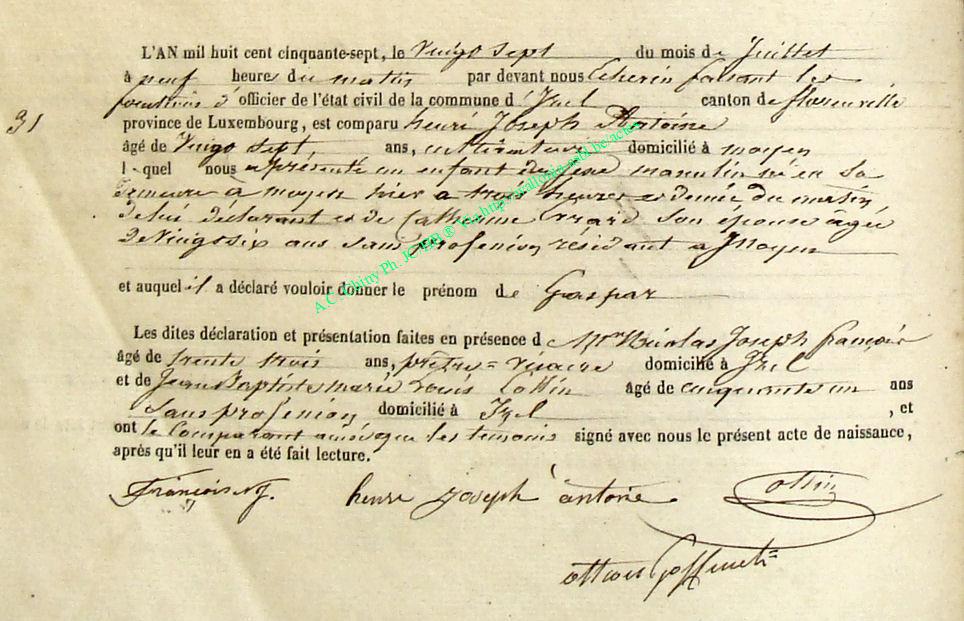 L'AN mil huit cent cinquante-sept, le Vingt sept du mois de Juillet
à neuf heure du matin par devant nous Echevin faisant les
fonctions d'officier de l'état civil de la commune d'Izel canton de florenville
31
province de Luxembourg, est comparu henri Joseph Antoine
âgé de Vingt sept ans, cultivateur domicilié à moyen
l quel nous a présenté un enfant de sexe masculin né en sa
demeure a moyen hier a trois heures et demie du matin
de lui déclarant et de Catherine son épouse âgée
de Vingt six ans sans profession, résidant a Moyen
et auquel il a déclaré vouloir donner le prénom de Gaspar
Les dites déclaration et présentation faites en présence d Mr Nicolas Joseph françois
âgé de trente trois ans, prêtre = vicaire domicilié à Izel
et de Jean Baptiste marie Louis Cottin âgé de cinquante un ans
sans profession domicilié à Izel , et
ont le Comparant ainsi que les temoins signé avec nous le présent acte de naissance,
après qu'il leur en a été fait lecture.
François NJ. henri joseph antoine Cottin
Goffinet